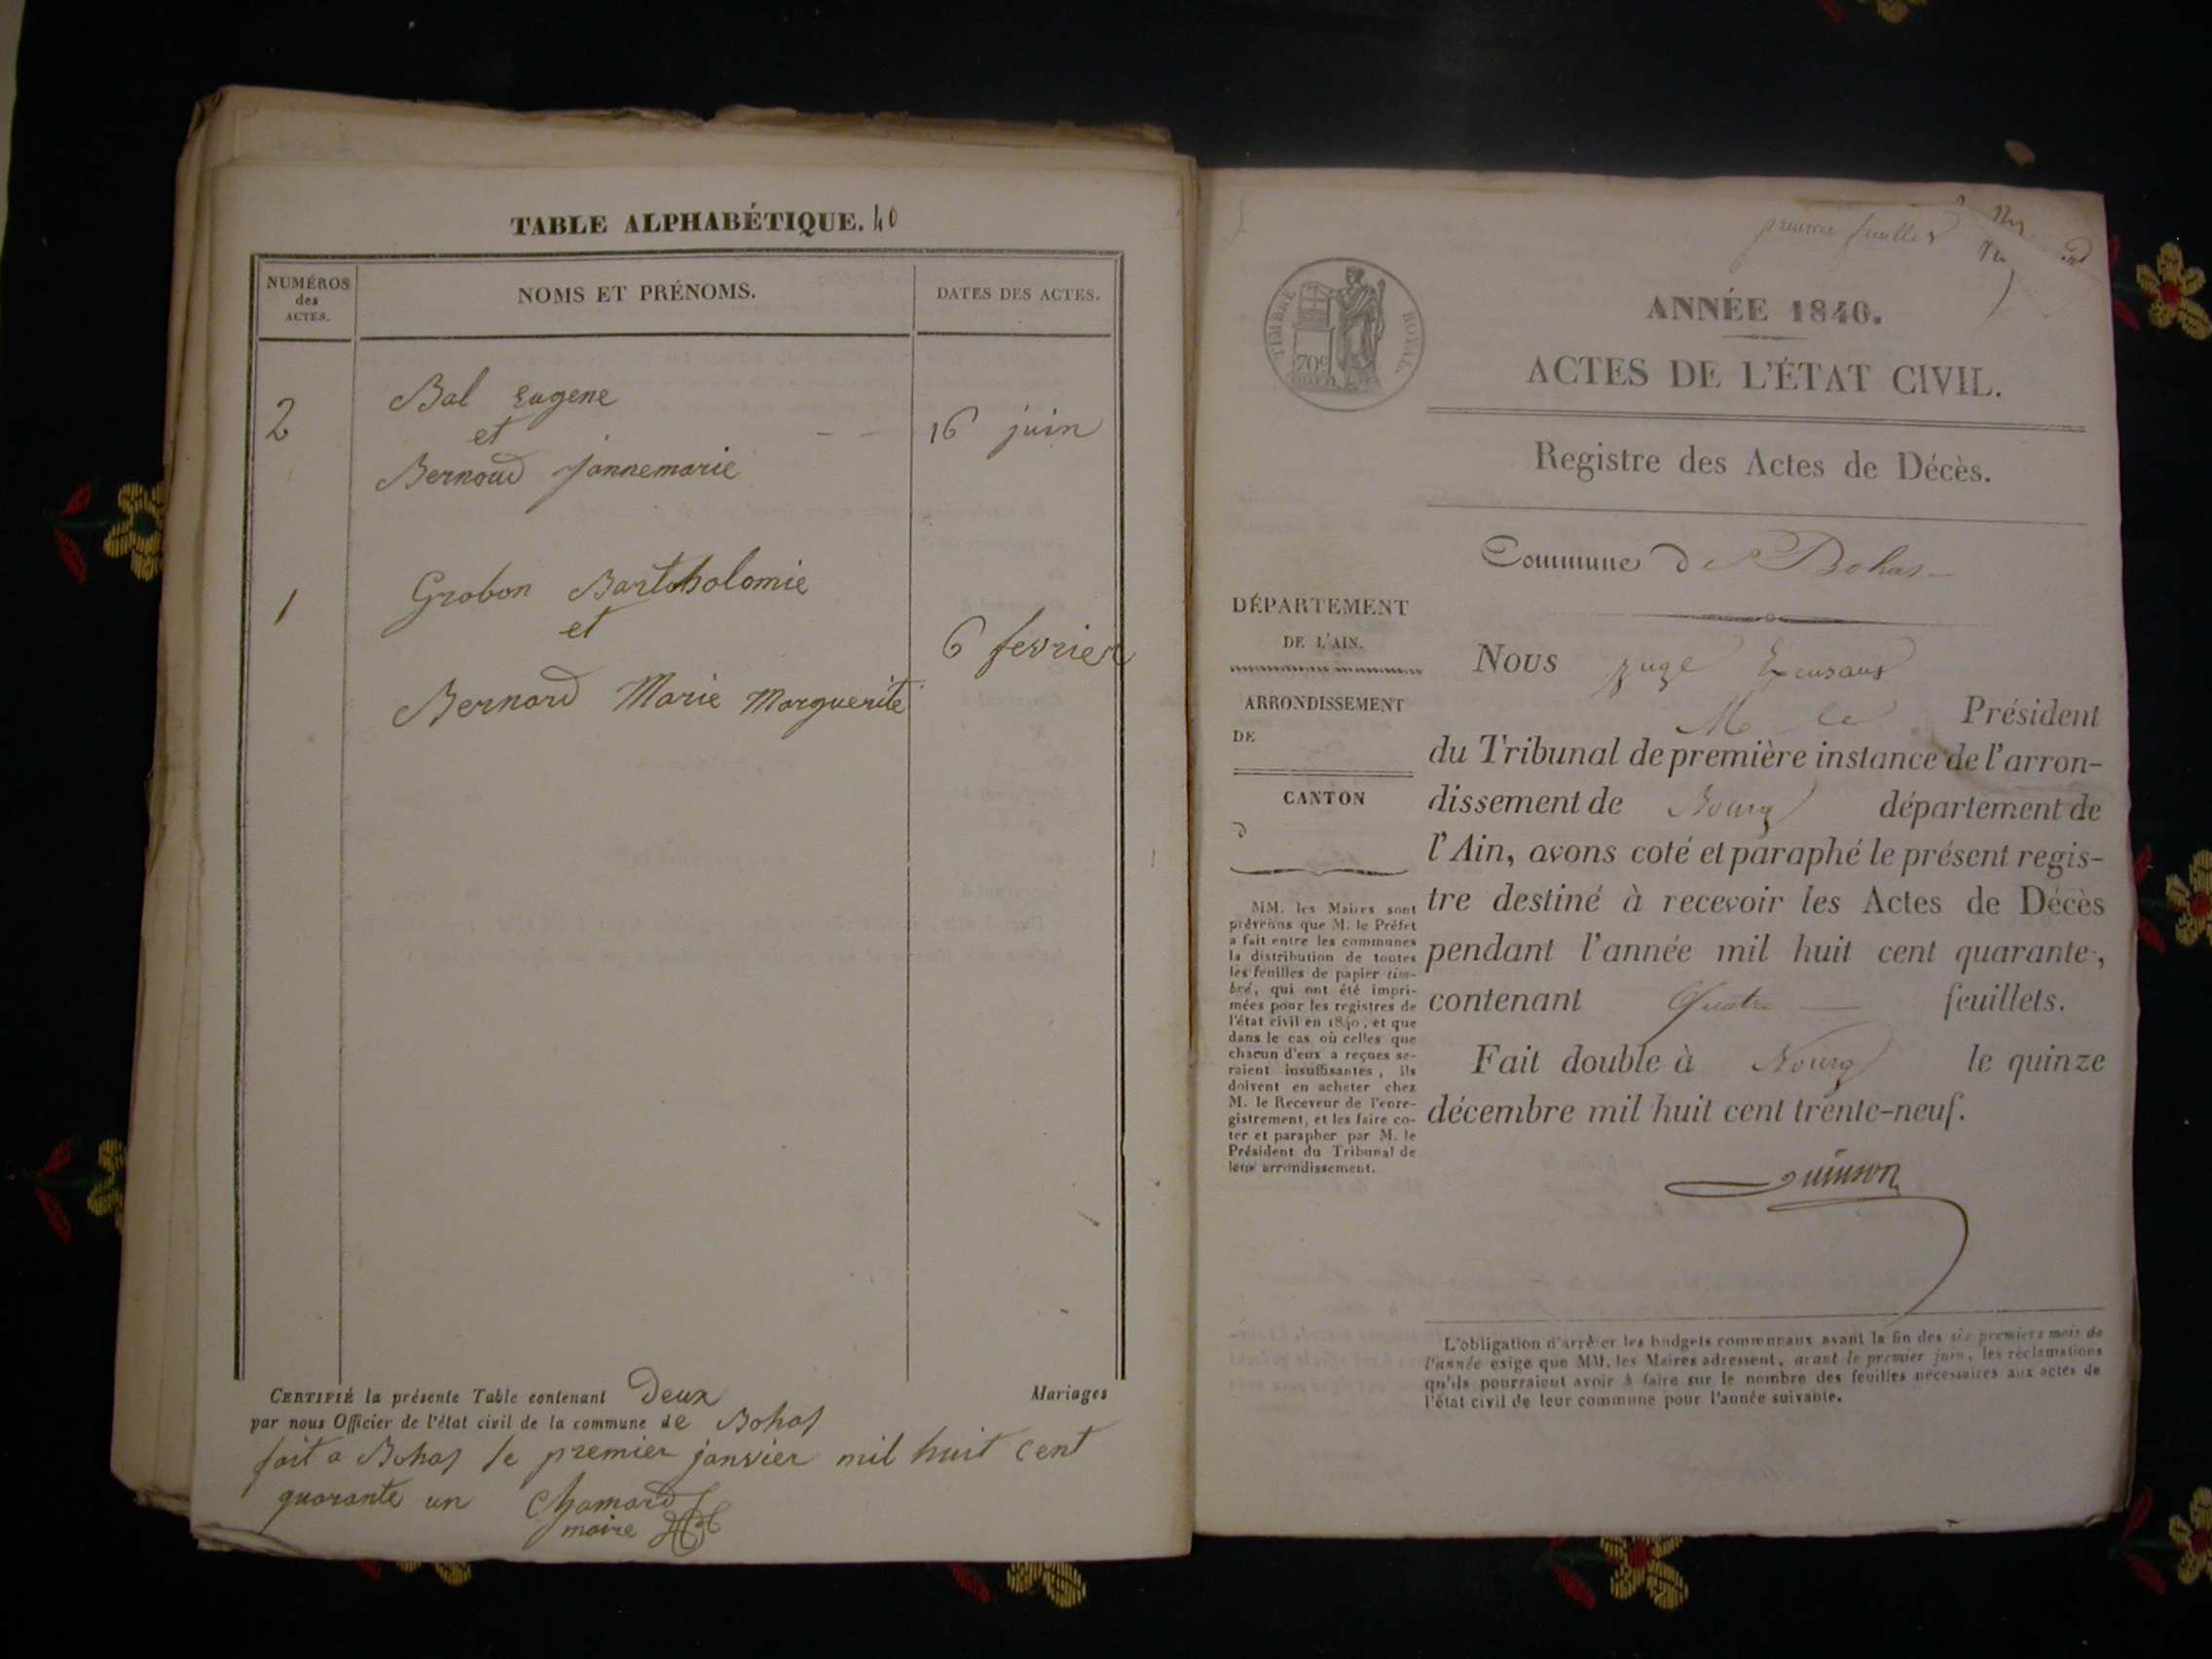 TABLE ALPHABÉTIQUE. 40
NUMÉROS
des
ACTES.
NOMS ET PRÉNOMS.
DATES DES ACTES.
2
Bal Eugene
et
Bernoud jannemarie
16 juin
1
Grobon Bartoholomie
et
Bernard Marie Marguerite
6 fevrier
CERTIFIÉ la présente Table contenant Deux Mariages
par nous Officier de l'état civil de la commune de Bohas
fait a Bohas le premier janvier mil huit cent
quarante un Chamard
maire
premier feuillet
TIMBRE ROYAL.
70c
ANNÉE 1840.
ACTES DE L'ÉTAT CIVIL.
Registre des Actes de Décès.
Commune de Bohas
DÉPARTEMENT
DE L'AIN.
ARRONDISSEMENT
DE
CANTON
d
MM. les Maires sont
prévenus que M. le Préfet
a fait entre les communes
la distribution de toutes
les feuilles de papier tim-
bré, qui ont été impri-
mées pour les registres de
l'état civil en 1840, et que
dans le cas où celles que
chacun d'eux a reçues se-
raient insuffisantes, ils
doivent en acheter chez
M. le Receveur de l'enre-
gistrement, et les faire co-
ter et parapher par M. le
Président du Tribunal de
leur arrondissement.
Nous juge
M le Président
du Tribunal de première instance de l'arron-
dissement de Bourg département de
l'Ain, avons coté et paraphé le présent regis-
tre destiné à recevoir les Actes de Décès
pendant l'année mil huit cent quarante,
contenant Quatre feuillets.
Fait double à Bourg le quinze
décembre mil huit cent trente-neuf.
L'obligation d'arrêter les budgets communaux avant la fin des six premiers mois de
l'année exige que MM. les Maires adressent, avant le premier juin, les réclamations
qu'ils pourraient avoir à faire sur le nombre des feuilles nécessaires aux actes de
l'état civil de leur commune pour l'année suivante.